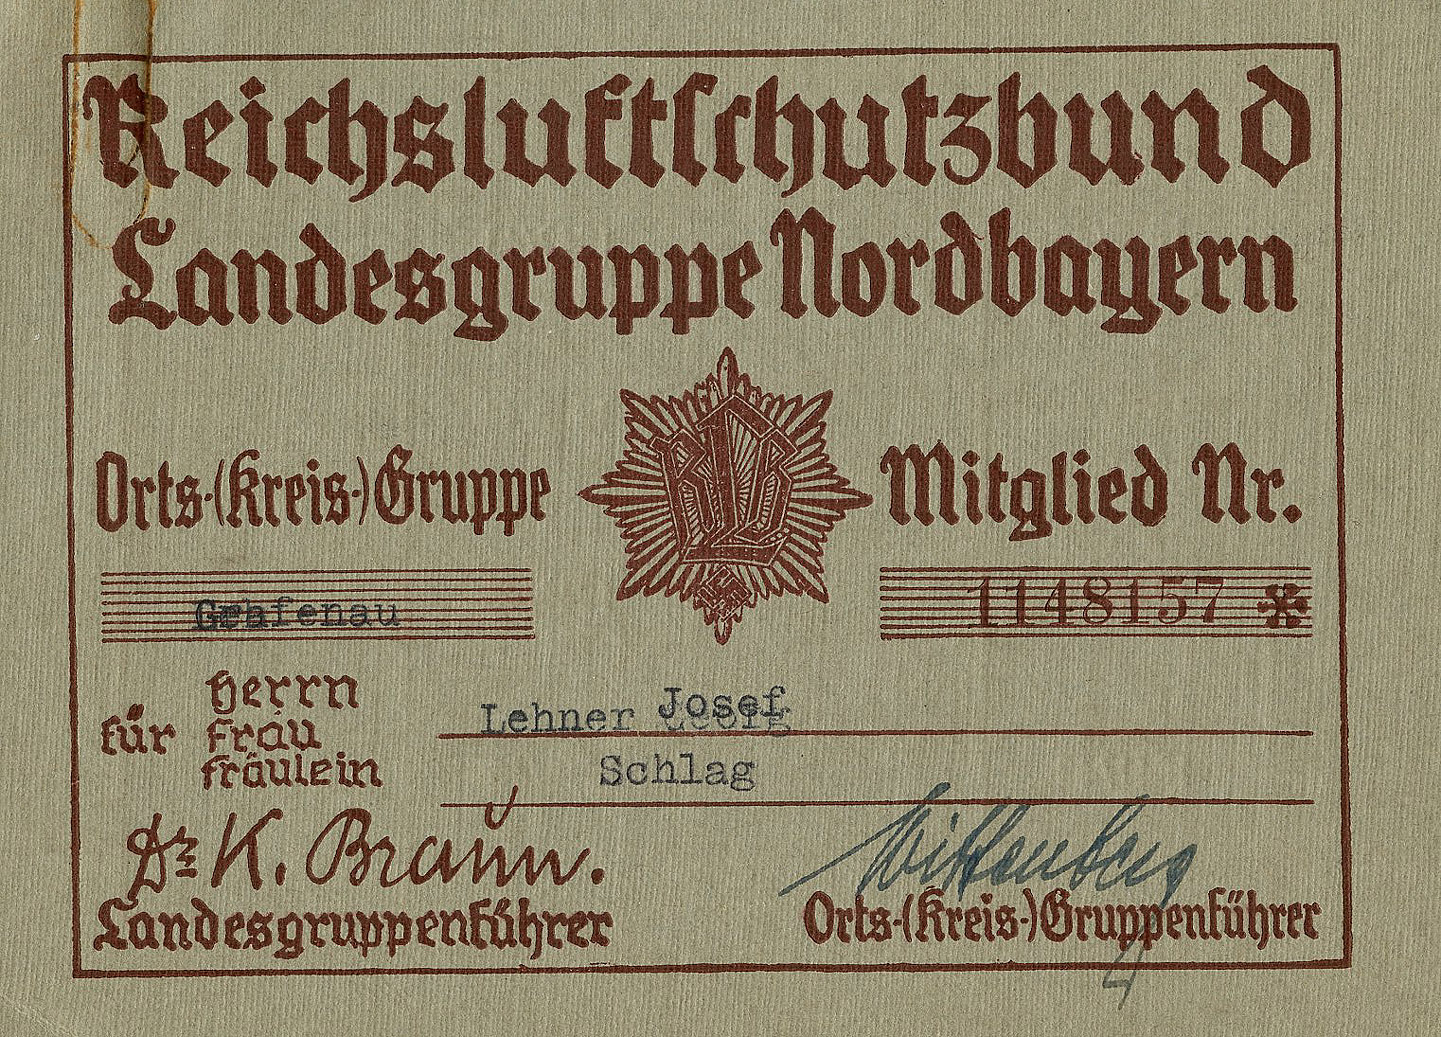 Reichsluftschutzbund
Landesgruppe Nordbayern
Orts-(Kreis-)Gruppe
RLB
Mitglied Nr.
Grafenau
1148157 *
für Herrn
Frau
Fräulein
Lehner Josef
Schlag
Dr. K. Braun.
Landesgruppenführer
Wittenberg
Orts-(Kreis-)Gruppenführer